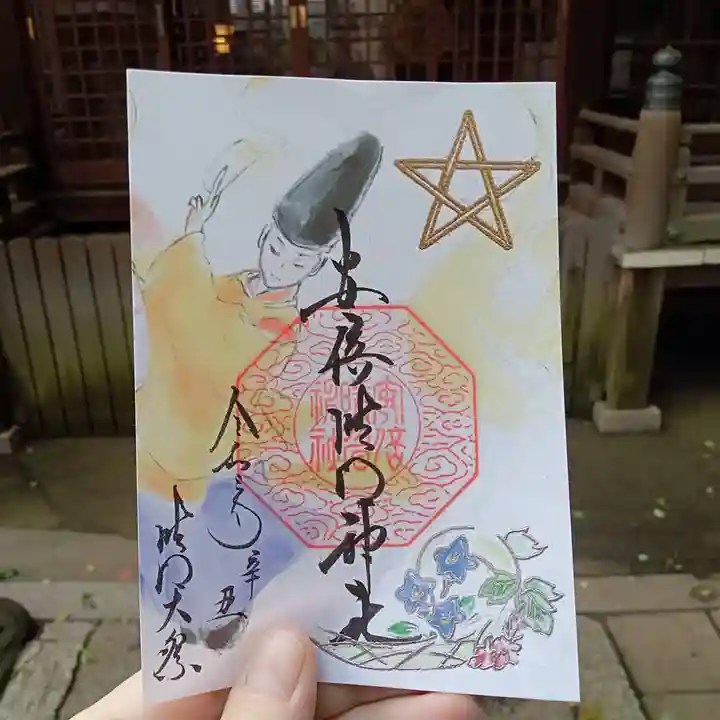 安倍晴明神社
安倍晴明神社
令和三辛丑
晴明大祭